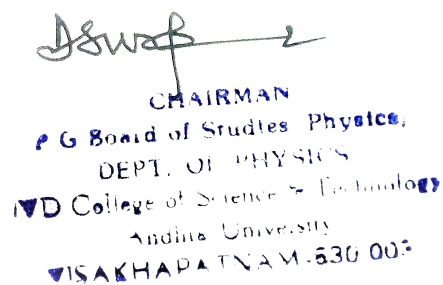 CHAIRMAN
P G Board of Studies Physics,
DEPT. OF PHYSICS
College of Science & Technology
Andhra University
VISAKHAPATNAM-530 003